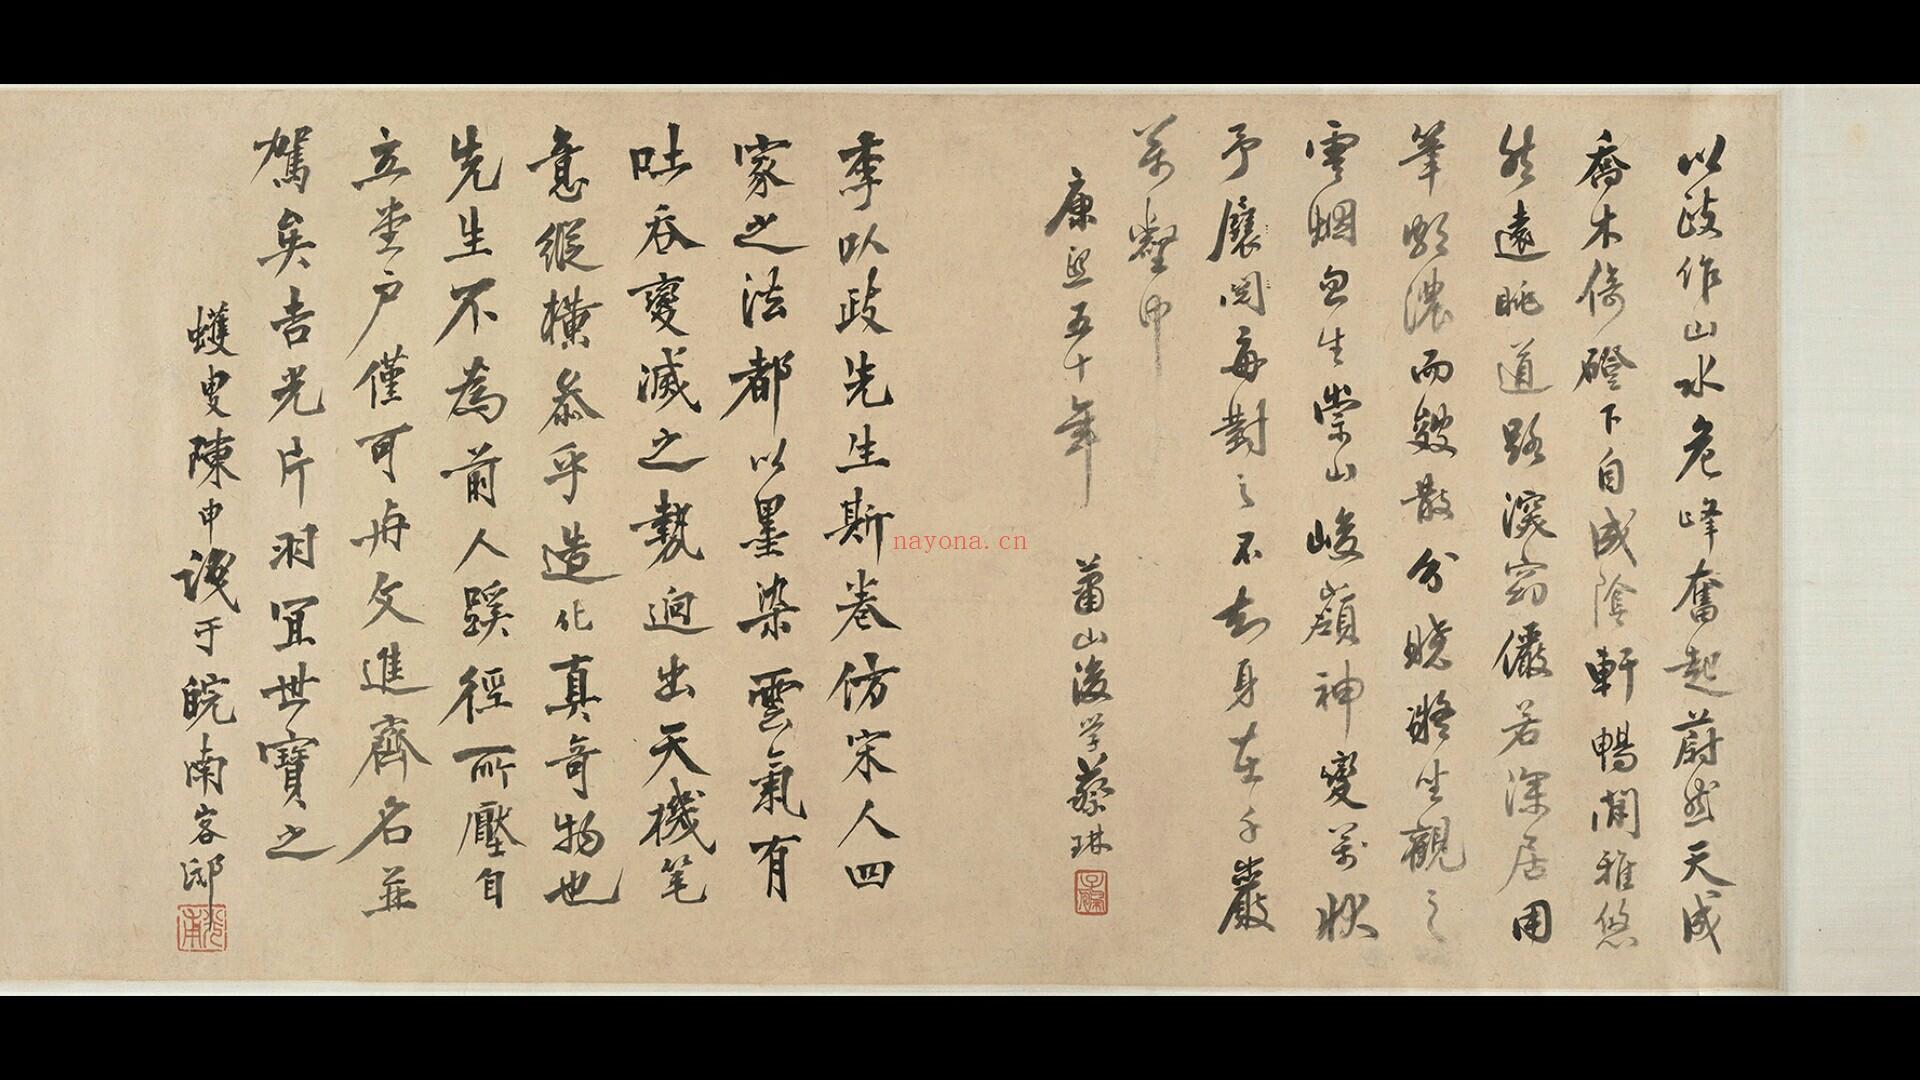 以政作山水危峰奮起蔚然天成
喬木倚磴下自成陰軒暢閒雅悠
然遠眺道路深窈儼若深居用
筆頗濃而皴散分曉凝坐觀之
雲烟忽生崇山峻嶺神變萬狀
予展閱每對之不知身在千巖
萬壑中
康熙五十年 蕭山後学蔡琳
季以政先生斯卷仿宋人四
家之法都以墨染雲氣有
吐吞變滅之勢迥出天機笔
意縱橫參乎造化真奇物也
先生不為前人蹊徑所壓自
立堂户僅可与文進齊名並
駕矣吉光片羽宜世寶之
蠖叟陳申識于皖南客邸
nayona.cn